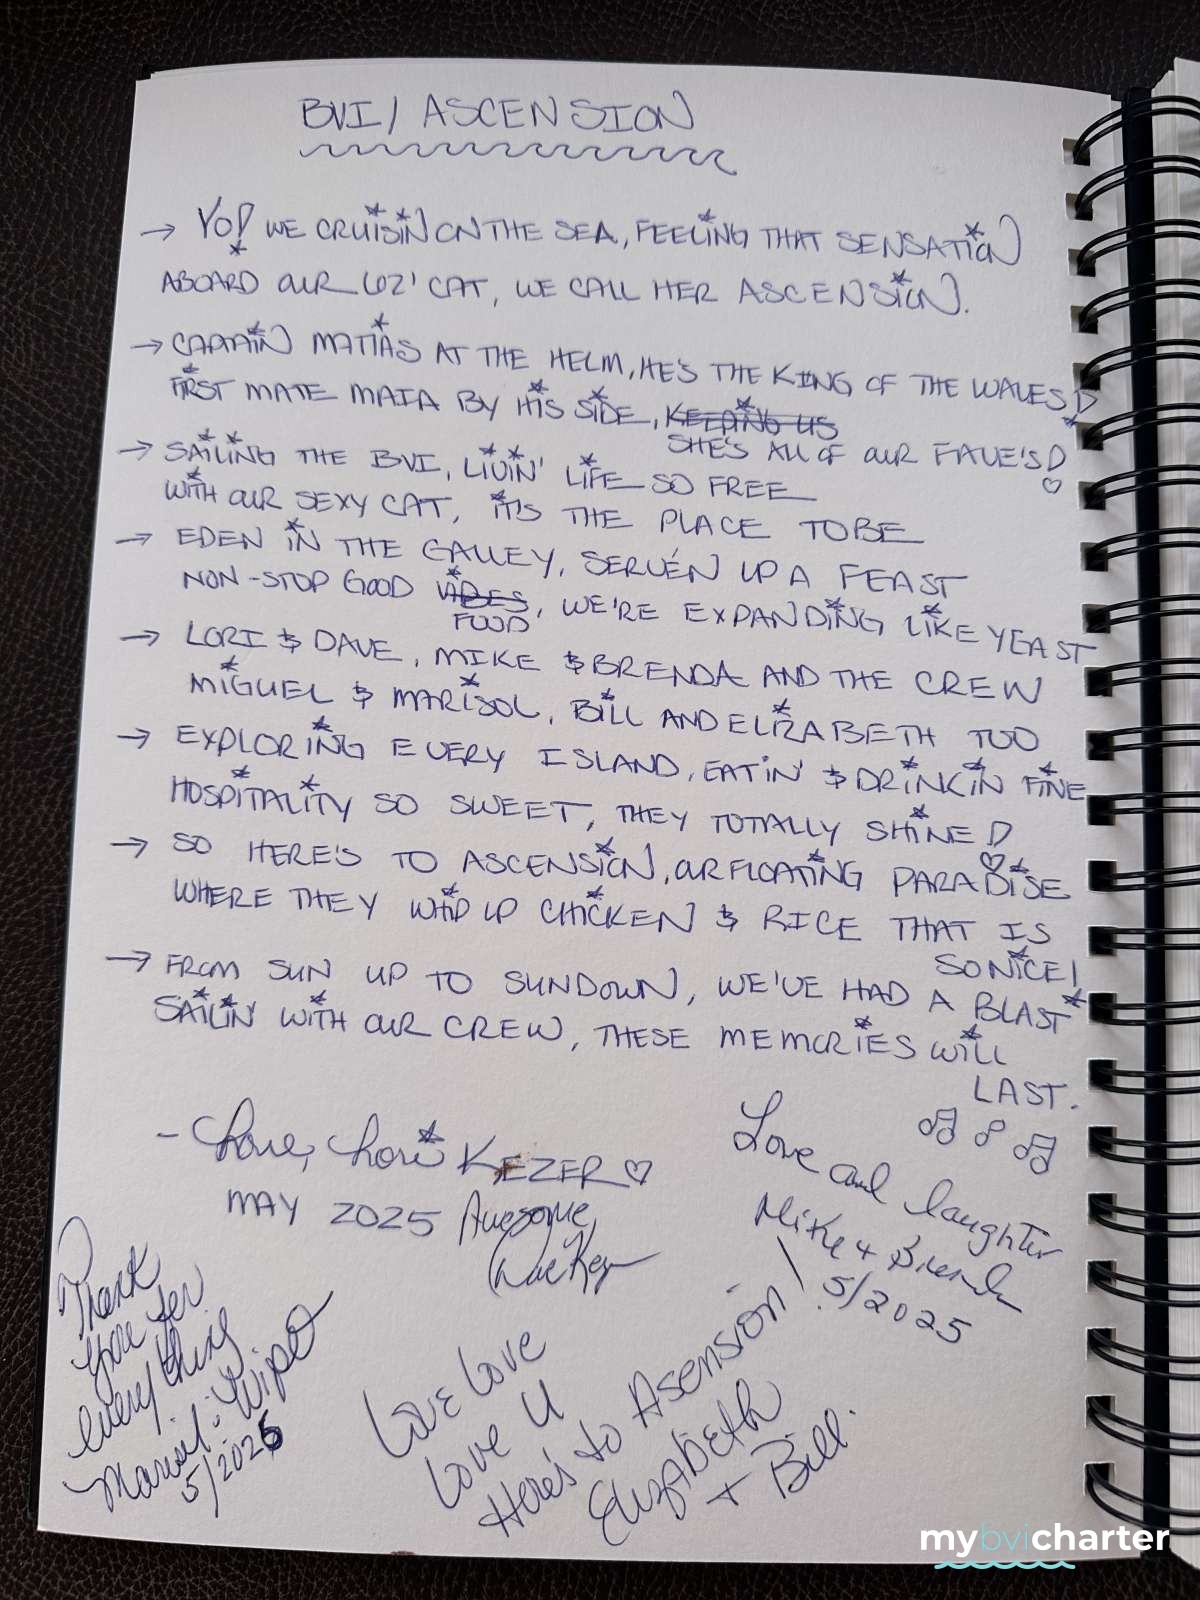 BVI / ASCENSION
→ YO! WE CRUISIN ON THE SEA, FEELING THAT SENSATION
ABOARD OUR 62' CAT, WE CALL HER ASCENSION.
→ CAPTAIN MATIAS AT THE HELM, HE'S THE KING OF THE WAVES!
FIRST MATE MAIA BY HIS SIDE, KEEPING US
SHE'S ALL OF OUR FAVE'S!
→ SAILING THE BVI, LIVIN' LIFE SO FREE
WITH OUR SEXY CAT, IT'S THE PLACE TO BE
→ EDEN IN THE GALLEY, SERVEN UP A FEAST
NON-STOP GOOD VIBES, WE'RE EXPANDING LIKE YEAST
FOOD
→ LORI & DAVE, MIKE & BRENDA AND THE CREW
MIGUEL & MARISOL, BILL AND ELIZABETH TOO
→ EXPLORING EVERY ISLAND, EATIN' & DRINKIN FINE
HOSPITALITY SO SWEET, THEY TOTALLY SHINE!
→ SO HERE'S TO ASCENSION, OUR FLOATING PARADISE
WHERE THEY WHIP UP CHICKEN & RICE THAT IS
SO NICE!
→ FROM SUN UP TO SUNDOWN, WE'VE HAD A BLAST
SAILIN' WITH OUR CREW, THESE MEMORIES WILL
LAST.
- Love, Lori KEZER
MAY 2025
Awesome,
Love and laughter
Mike + Brenda
5/2025
Thank
you for
everything
Marisol
5/2025
Live Love
Love U
Here's to Asension!
Elizabeth
+ Bill.
mybvicharter